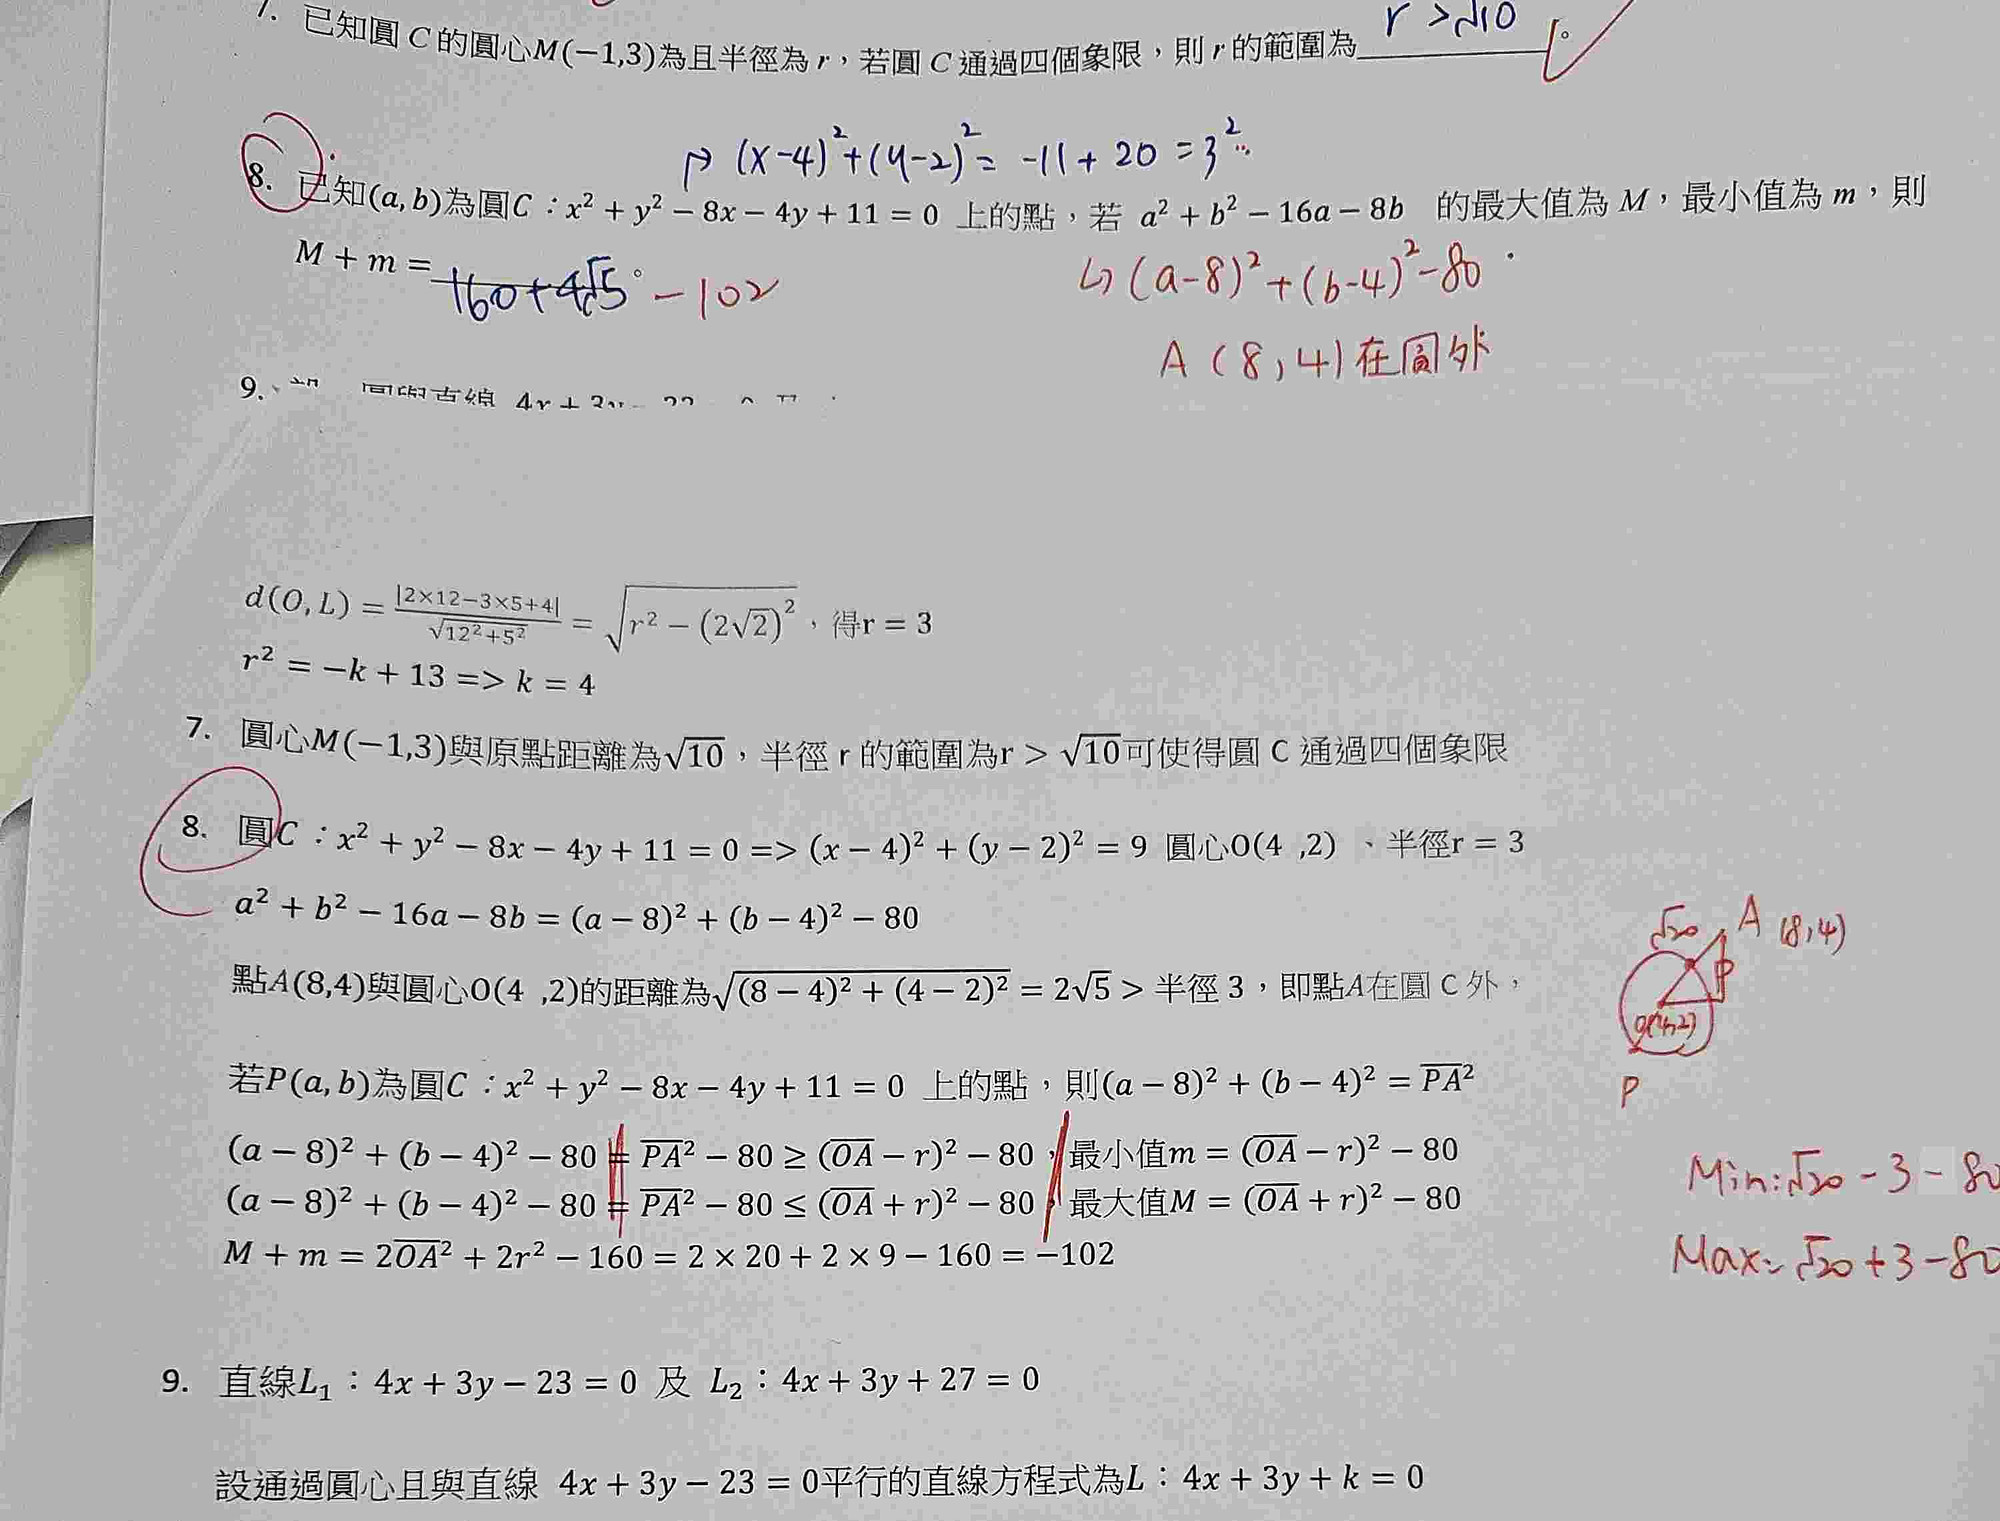 7. 已知圓 C 的圓心M(−1,3)為且半徑為 r，若圓 C 通過四個象限，則 r 的範圍為 r > √10 。
(x-4)²+(y-2)² = -11+20 = 3²
8. 已知(a,b)為圓C：x² + y² − 8x − 4y + 11 = 0 上的點，若 a² + b² − 16a − 8b 的最大值為 M，最小值為 m，則
M + m = 160+4√5 。 -102
(a-8)²+(b-4)²-80
A (8,4) 在圓外
9. 圓與直線
d(O,L) = |2×12−3×5+4| / √12²+5² = √r² − (2√2)²，得r = 3
r² = −k + 13 => k = 4
7. 圓心M(−1,3)與原點距離為√10，半徑 r 的範圍為r > √10可使得圓 C 通過四個象限
8. 圓C：x² + y² − 8x − 4y + 11 = 0 => (x − 4)² + (y − 2)² = 9 圓心O(4 ,2) 、半徑r = 3
a² + b² − 16a − 8b = (a − 8)² + (b − 4)² − 80
√20 A (8,4)
點A(8,4)與圓心O(4 ,2)的距離為√(8 − 4)² + (4 − 2)² = 2√5 > 半徑 3，即點A在圓 C 外，
P
O(4,2)
若P(a,b)為圓C：x² + y² − 8x − 4y + 11 = 0 上的點，則(a − 8)² + (b − 4)² = PA²
P
(a − 8)² + (b − 4)² − 80 = PA² − 80 ≥ (OA − r)² − 80，最小值m = (OA − r)² − 80
Min: √20 - 3 - 80
(a − 8)² + (b − 4)² − 80 = PA² − 80 ≤ (OA + r)² − 80，最大值M = (OA + r)² − 80
Max: √20 + 3 - 80
M + m = 2OA² + 2r² − 160 = 2 × 20 + 2 × 9 − 160 = −102
9. 直線L₁：4x + 3y − 23 = 0 及 L₂：4x + 3y + 27 = 0
設通過圓心且與直線 4x + 3y − 23 = 0平行的直線方程式為L：4x + 3y + k = 0